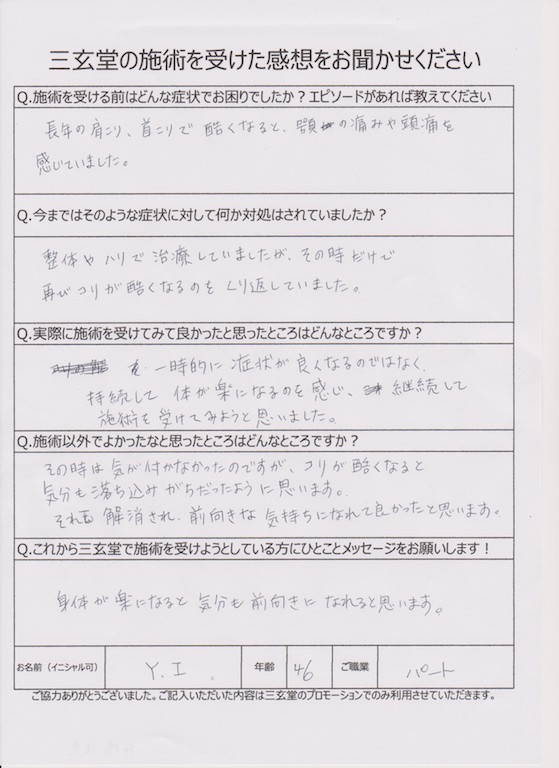 三玄堂の施術を受けた感想をお聞かせください
Q.施術を受ける前はどんな症状でお困りでしたか？エピソードがあれば教えてください
長年の肩こり、首こりで 酷くなると、顎の痛みや頭痛を
感じていました。
Q.今まではそのような症状に対して何か対処はされていましたか？
整体や ハリで 治療していましたが、その時だけで
再びコリが酷くなるのを くり返していました。
Q.実際に施術を受けてみて良かったと思ったところはどんなところですか？
一時的に 症状が 良くなるのではなく、
持続して 体が楽になるのを感じ、継続して
施術を受けてみようと思いました。
Q.施術以外でよかったなと思ったところはどんなところですか？
その時は気が付かなかったのですが、コリが酷くなると
気分も落ち込みがちだったように思います。
それも 解消され、前向きな 気持ちになれて良かったと思います。
Q.これから三玄堂で施術を受けようとしている方にひとことメッセージをお願いします！
身体が楽になると 気分も 前向きに なれると思います。
お名前（イニシャル可） Y.I. 年齢 46 ご職業 パート
ご協力ありがとうございました。ご記入いただいた内容は三玄堂のプロモーションでのみ利用させていただきます。